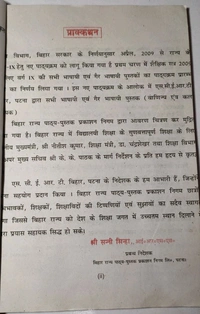 प्राक्कथन
विभाग, बिहार सरकार के निर्णयानुसार अप्रैल, 2009 से राज्य के
-IX हेतु नए पाठ्यक्रम को लागू किया गया है। प्रथम चरण में शैक्षिक सत्र 2009
वर्ग IX की सभी भाषायी एवं गैर भाषायी पुस्तकों का पाठ्यक्रम
का निर्णय लिया गया। इस नए पाठ्यक्रम के आलोक में एस.सी.ई.आर.टी.
, पटना द्वारा सभी भाषायी एवं गैर भाषायी पुस्तकें
बिहार राज्य पाठ्य-पुस्तक प्रकाशन निगम द्वारा आवरण चित्रण कर मुद्रित
गया है। बिहार राज्य में विद्यालयी शिक्षा के गुणवत्तापूर्ण शिक्षा के लिए
मुख्यमंत्री, श्री नीतीश कुमार, शिक्षा मंत्री,
मुख्य सचिव श्री के. के. पाठक के मार्ग निर्देशन के प्रति हम हृदय से
एस. सी. ई. आर. टी. बिहार, पटना के निदेशक के हम आभारी हैं, जिन्होंने
सहयोग प्रदान किया। बिहार राज्य पाठ्य-पुस्तक प्रकाशन निगम
शिक्षकों, शिक्षाविदों की टिप्पणियों एवं सुझावों का सदैव स्वागत
जिससे बिहार राज्य को देश के शिक्षा जगत में उच्चतम स्थान दिलाने
प्रयास सहायक सिद्ध हो सके।
श्री सन्नी सिन्हा,
प्रबंध निदेशक
बिहार राज्य पाठ्य-पुस्तक प्रकाशन निगम लि०, पटना